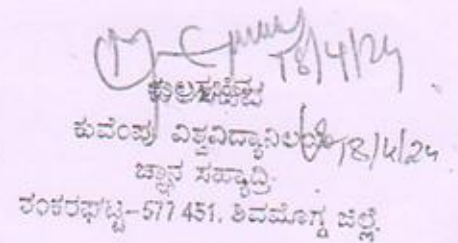 18/4/24
ಕುಲಸಚಿವ
ಕುವೆಂಪು ವಿಶ್ವವಿದ್ಯಾನಿಲಯ 18/4/24
ಜ್ಞಾನ ಸಹ್ಯಾದ್ರಿ
ಶಂಕರಘಟ್ಟ-577 451. ಶಿವಮೊಗ್ಗ ಜಿಲ್ಲೆ.